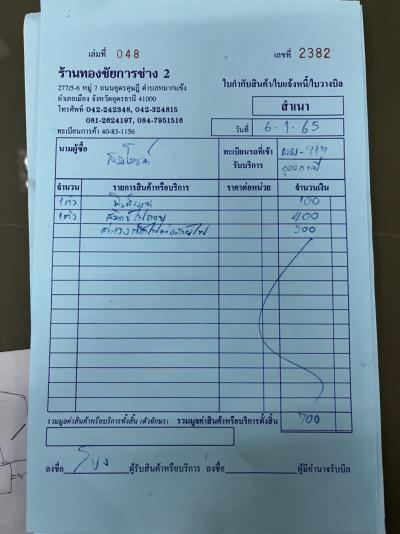 เล่มที่ 048 เลขที่ 2382
ร้านทองชัยการช่าง 2
277/5-6 หมู่ 7 ถนนอุดรดุษฎี ตำบลหมากแข้ง
อำเภอเมือง จังหวัดอุดรธานี 41000
โทรศัพท์ 042-242348, 042-324815
081-2624197, 084-7951516
ทะเบียนการค้า 40-83-1156
ใบกำกับสินค้า/ใบแจ้งหนี้/ใบวางบิล
สำเนา
วันที่ 6-1-65
นามผู้ซื้อ
ทะเบียนรถที่เข้ารับบริการ
จำนวน รายการสินค้าหรือบริการ ราคาต่อหน่วย จำนวนเงิน
1 ตัว 100
1 ตัว 400
รวมมูลค่าสินค้าหรือบริการทั้งสิ้น (ตัวอักษร) รวมมูลค่าสินค้าหรือบริการทั้งสิ้น 700
ลงชื่อ ผู้รับสินค้าหรือบริการ ลงชื่อ ผู้มีอำนาจรับบิล